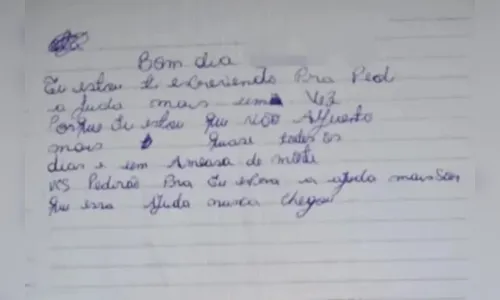 Bom dia
Eu estou te escrevendo Pra Ped
a Juda mais uma Vez
Porque Eu estou que não Aguento
mais quase todos os
dias e um Ameasa de morte
vcs Pederão Pra Eu espera a ajuda mais
que essa Ajuda nunca chegou